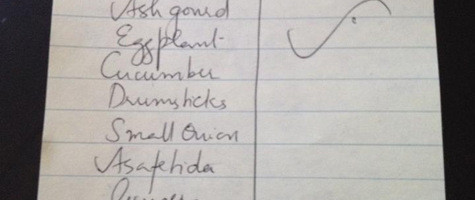 Ash gourd
Eggplant
Cucumber
Drumsticks
Small Onion
Asafetida